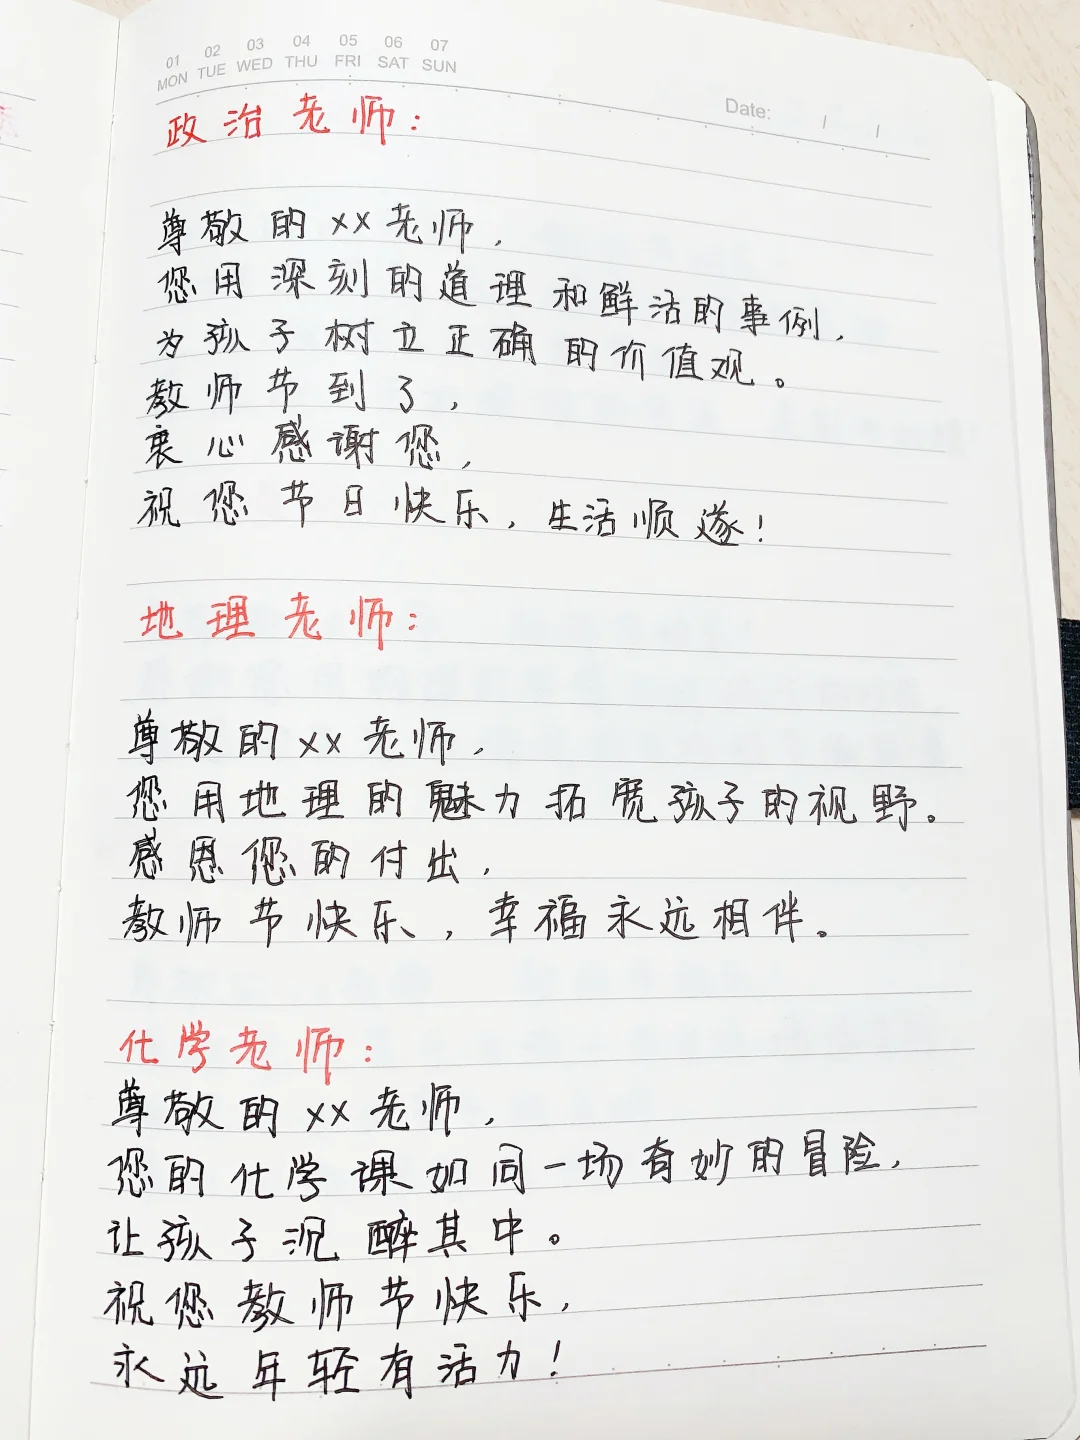 01 02 03 04 05 06 07
MON TUE WED THU FRI SAT SUN
Date:
政治老师:
尊敬的××老师,
您用深刻的道理和鲜活的事例,
为孩子树立正确的价值观。
教师节到了,
衷心感谢您,
祝您节日快乐,生活顺遂!
地理老师:
尊敬的××老师,
您用地理的魅力拓宽孩子的视野。
感恩您的付出,
教师节快乐、,幸福永远相伴。
化学老师:
尊敬的××老师,
您的化学课如同一场奇妙的冒险,
让孩子沉醉其中。
祝您教师节快乐,
永远年轻有活力!